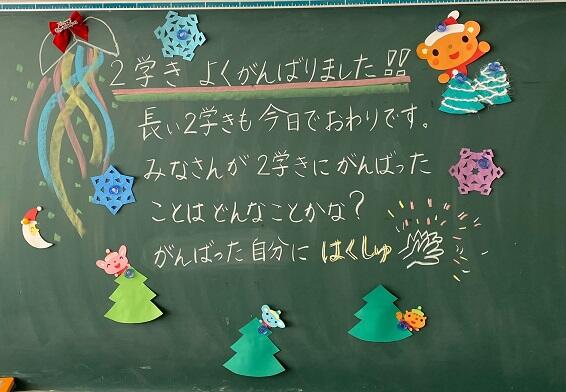 2学き よくがんばりました!!
長い2学きも今日でおわりです。
みなさんが 2学きにがんばった
ことは どんなことかな？
がんばった自分に はくしゅ